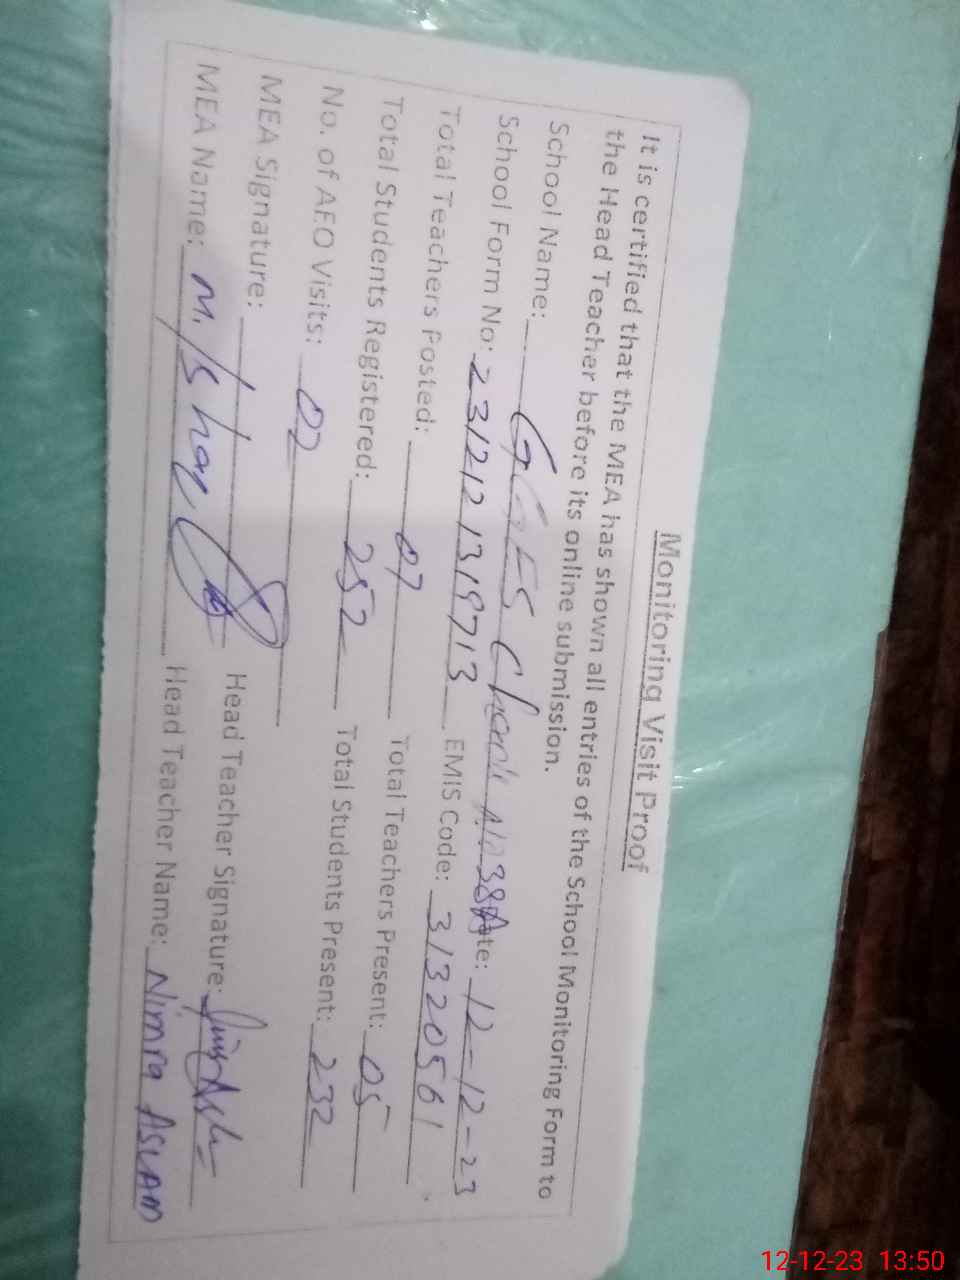 Monitoring Visit Proof
It is certified that the MEA has shown all entries of the School Monitoring Form to
the Head Teacher before its online submission.
School Name: GGES Chack No 38A Date: 12-12-23
School Form No: 2312121319713 EMIS Code: 31320561
Total Teachers Posted: 07 Total Teachers Present: 05
Total Students Registered: 252 Total Students Present: 232
No. of AEO Visits: 02
MEA Signature: Head Teacher Signature:
MEA Name: M. Ishaq Head Teacher Name: Nimra Aslam
12-12-23 13:50